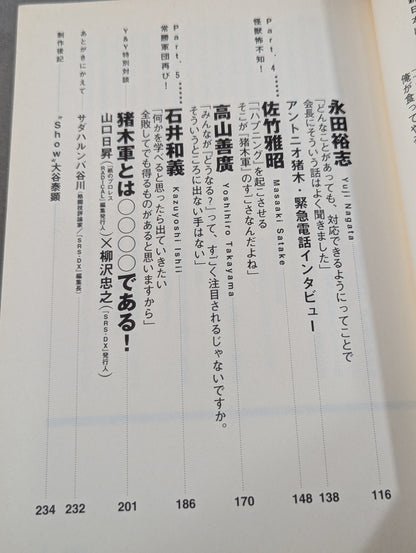 俺が食っ
永田裕志 Yuji Nagata
「どんなことがあっても、対応できるようにってことで
会長にそういう話はよく聞きました」
116
アントニオ猪木・緊急電話インタビュー
138
Part.4……
怪獣怖不知!
佐竹雅昭 Masaaki Satake
「『ハプニング』を起こさせる
そこが『猪木軍』のすごさなんだよね」
148
高山善廣 Yoshihiro Takayama
「みんなが『どうなる?』って、すごく注目されるじゃないですか。
そういうところに出ない手はない」
170
Part.5……
常勝軍団再び!
石井和義 Kazuyoshi Ishii
「何かを学べると思ったら出ていきたい
全敗してでも得るものがあると思いますから」
186
Y&Y特別対談
猪木軍とは○○○○である!
山口日昇(『紙のプロレスRADICAL』編集発行人)×柳沢忠之(『SRS・DX』発行人)
201
あとがきにかえて
サダハルンバ谷川(格闘技評論家/『SRS・DX』編集長)
232
制作後記
“Show”大谷泰顕
234